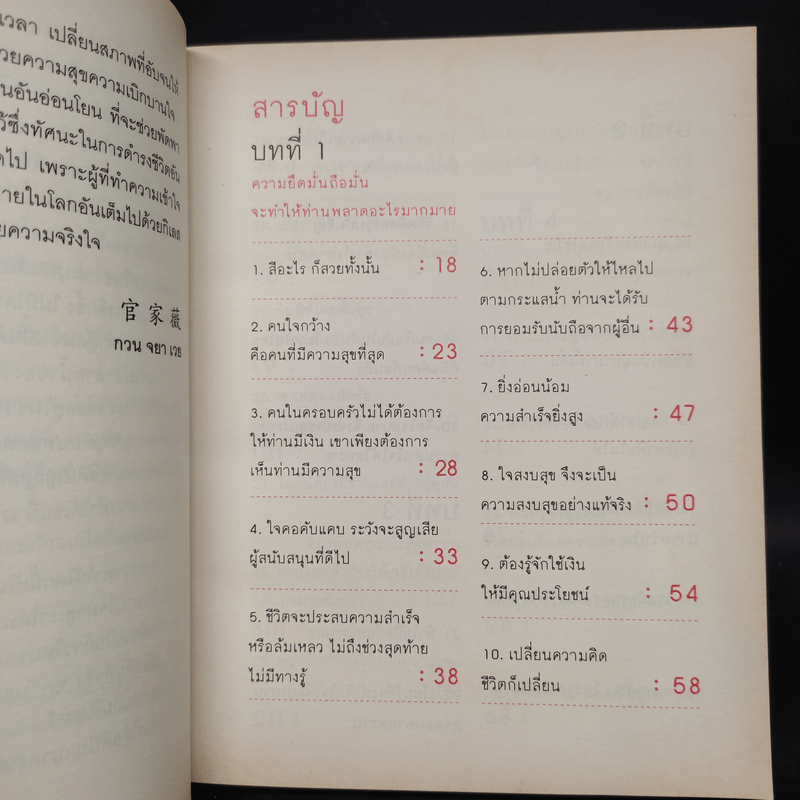 เวลา เปลี่ยนสภาพที่อับจนให้
วยความสุขความเบิกบานใจ
นอันอ่อนโยน ที่จะช่วยพัดพา
ว้ซึ่งทัศนะในการดำรงชีวิตอัน
ดไป เพราะผู้ที่ทำความเข้าใจ
ายในโลกอันเต็มไปด้วยกิเลส
ยความจริงใจ
官家薇
กวน จยา เวย
สารบัญ
บทที่ 1
ความยึดมั่นถือมั่น
จะทำให้ท่านพลาดอะไรมากมาย
1. สีอะไร ก็สวยทั้งนั้น : 18
2. คนใจกว้าง
คือคนที่มีความสุขที่สุด : 23
3. คนในครอบครัวไม่ได้ต้องการ
ให้ท่านมีเงิน เขาเพียงต้องการ
เห็นท่านมีความสุข : 28
4. ใจคอคับแคบ ระวังจะสูญเสีย
ผู้สนับสนุนที่ดีไป : 33
5. ชีวิตจะประสบความสำเร็จ
หรือล้มเหลว ไม่ถึงช่วงสุดท้าย
ไม่มีทางรู้ : 38
6. หากไม่ปล่อยตัวให้ไหลไป
ตามกระแสน้ำ ท่านจะได้รับ
การยอมรับนับถือจากผู้อื่น : 43
7. ยิ่งอ่อนน้อม
ความสำเร็จยิ่งสูง : 47
8. ใจสงบสุข จึงจะเป็น
ความสงบสุขอย่างแท้จริง : 50
9. ต้องรู้จักใช้เงิน
ให้มีคุณประโยชน์ : 54
10. เปลี่ยนความคิด
ชีวิตก็เปลี่ยน : 58